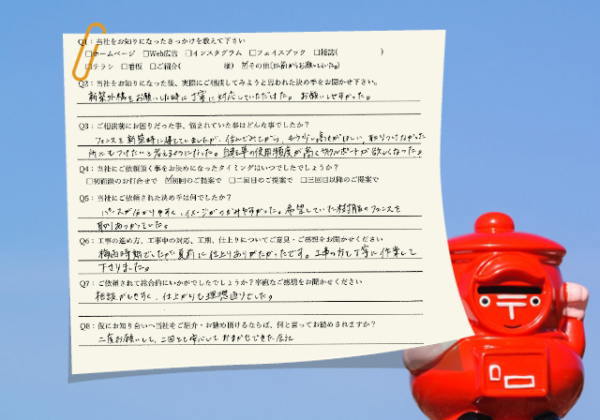 Q1：当社をお知りになったきっかけを教えて下さい
□ホームページ □Web広告 □インスタグラム □フェイスブック □雑誌( )
□チラシ □看板 □ご紹介( 様) その他(以前からお願いしていた。)
Q2：当社をお知りになった後、実際にご相談してみようと思われた決め手をお聞かせ下さい。
新築外構をお願いした時に丁寧に対応していただけた。お願いしやすかった。
Q3：ご相談前にお困りだった事、悩まれていた事はどんな事でしたか？
フェンスを新築時に建てていましたが、住んでみてから、もう少し高さがほしい、取りつけなかった
所にもつけたいと考えるようになった。自転車の使用頻度が高くサイクルポートが欲しくなった。
Q4：当社にご依頼頂く事をお決めになったタイミングはいつでしたでしょうか？
□初面談のお打合せで ☑初回のご提案で □二回目のご提案で □三回目以降のご提案で
Q5：当社にご依頼された決め手は何でしたか？
パースが分かりやすく、イメージがつかみやすかった。希望していた樹脂のフェンスを
取りあつかっていた。
Q6：工事の進め方、工事中の対応、工期、仕上りについてご意見・ご感想をお聞かせください
梅雨時期でしたが夏前に仕上りありがたかったです。工事の方も丁寧に作業して
下さりました。
Q7：ご依頼されて総合的にいかがでしたでしょうか？率直なご感想をお聞かせください
相談がしやすく、仕上がりも理想通りでした。
Q8：仮にお知り合いへ当社をご紹介・お勧め頂けるならば、何と言ってお勧めされますか？
二度お願いして、二回とも安心しておまかせできた会社
〒